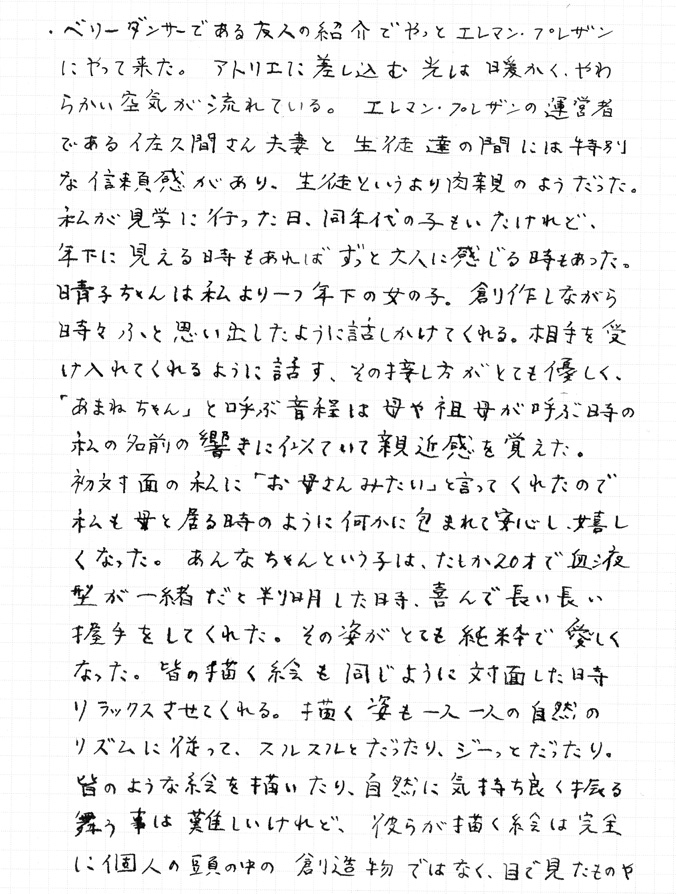 ・ベリーダンサーである友人の紹介でやっとエレマン・プレザン
にやって来た。アトリエに差し込む光は暖かく、やわ
らかい空気が流れている。エレマン・プレザンの運営者
である佐久間さん夫妻と生徒達の間には特別
な信頼感があり、生徒というより肉親のようだった。
私が見学に行った日、同年代の子もいたけれど、
年下に見える時もあればずっと大人に感じる時もあった。
晴子ちゃんは私より一つ年下の女の子。創作しながら
時々ふと思い出したように話しかけてくれる。相手を受
け入れてくれるように話す、その接し方がとても優しく、
「あまねちゃん」と呼ぶ音程は母や祖母が呼ぶ時の
私の名前の響きに似ていて親近感を覚えた。
初対面の私に「お母さんみたい」と言ってくれたので
私も母と居る時のように何かに包まれて安心し、嬉し
くなった。あんなちゃんという子は、たしか20才で血液
型が一緒だと判明した時、喜んで長い長い
握手をしてくれた。その姿がとても純粋で愛しく
なった。皆の描く絵も同じように対面した時
リラックスさせてくれる。描く姿も一人一人の自然の
リズムに従って、スルスルとだったり、ジーっとだったり。
皆のような絵を描いたり、自然に気持ち良く振る
舞う事は難しいけれど、彼らが描く絵は完全
に個人の頭の中の創造物ではなく、目で見たものや